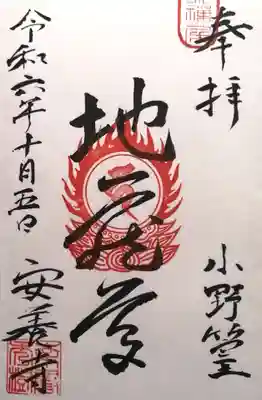 奉拝
小野篁
地蔵尊
令和六年十月五日
安養寺